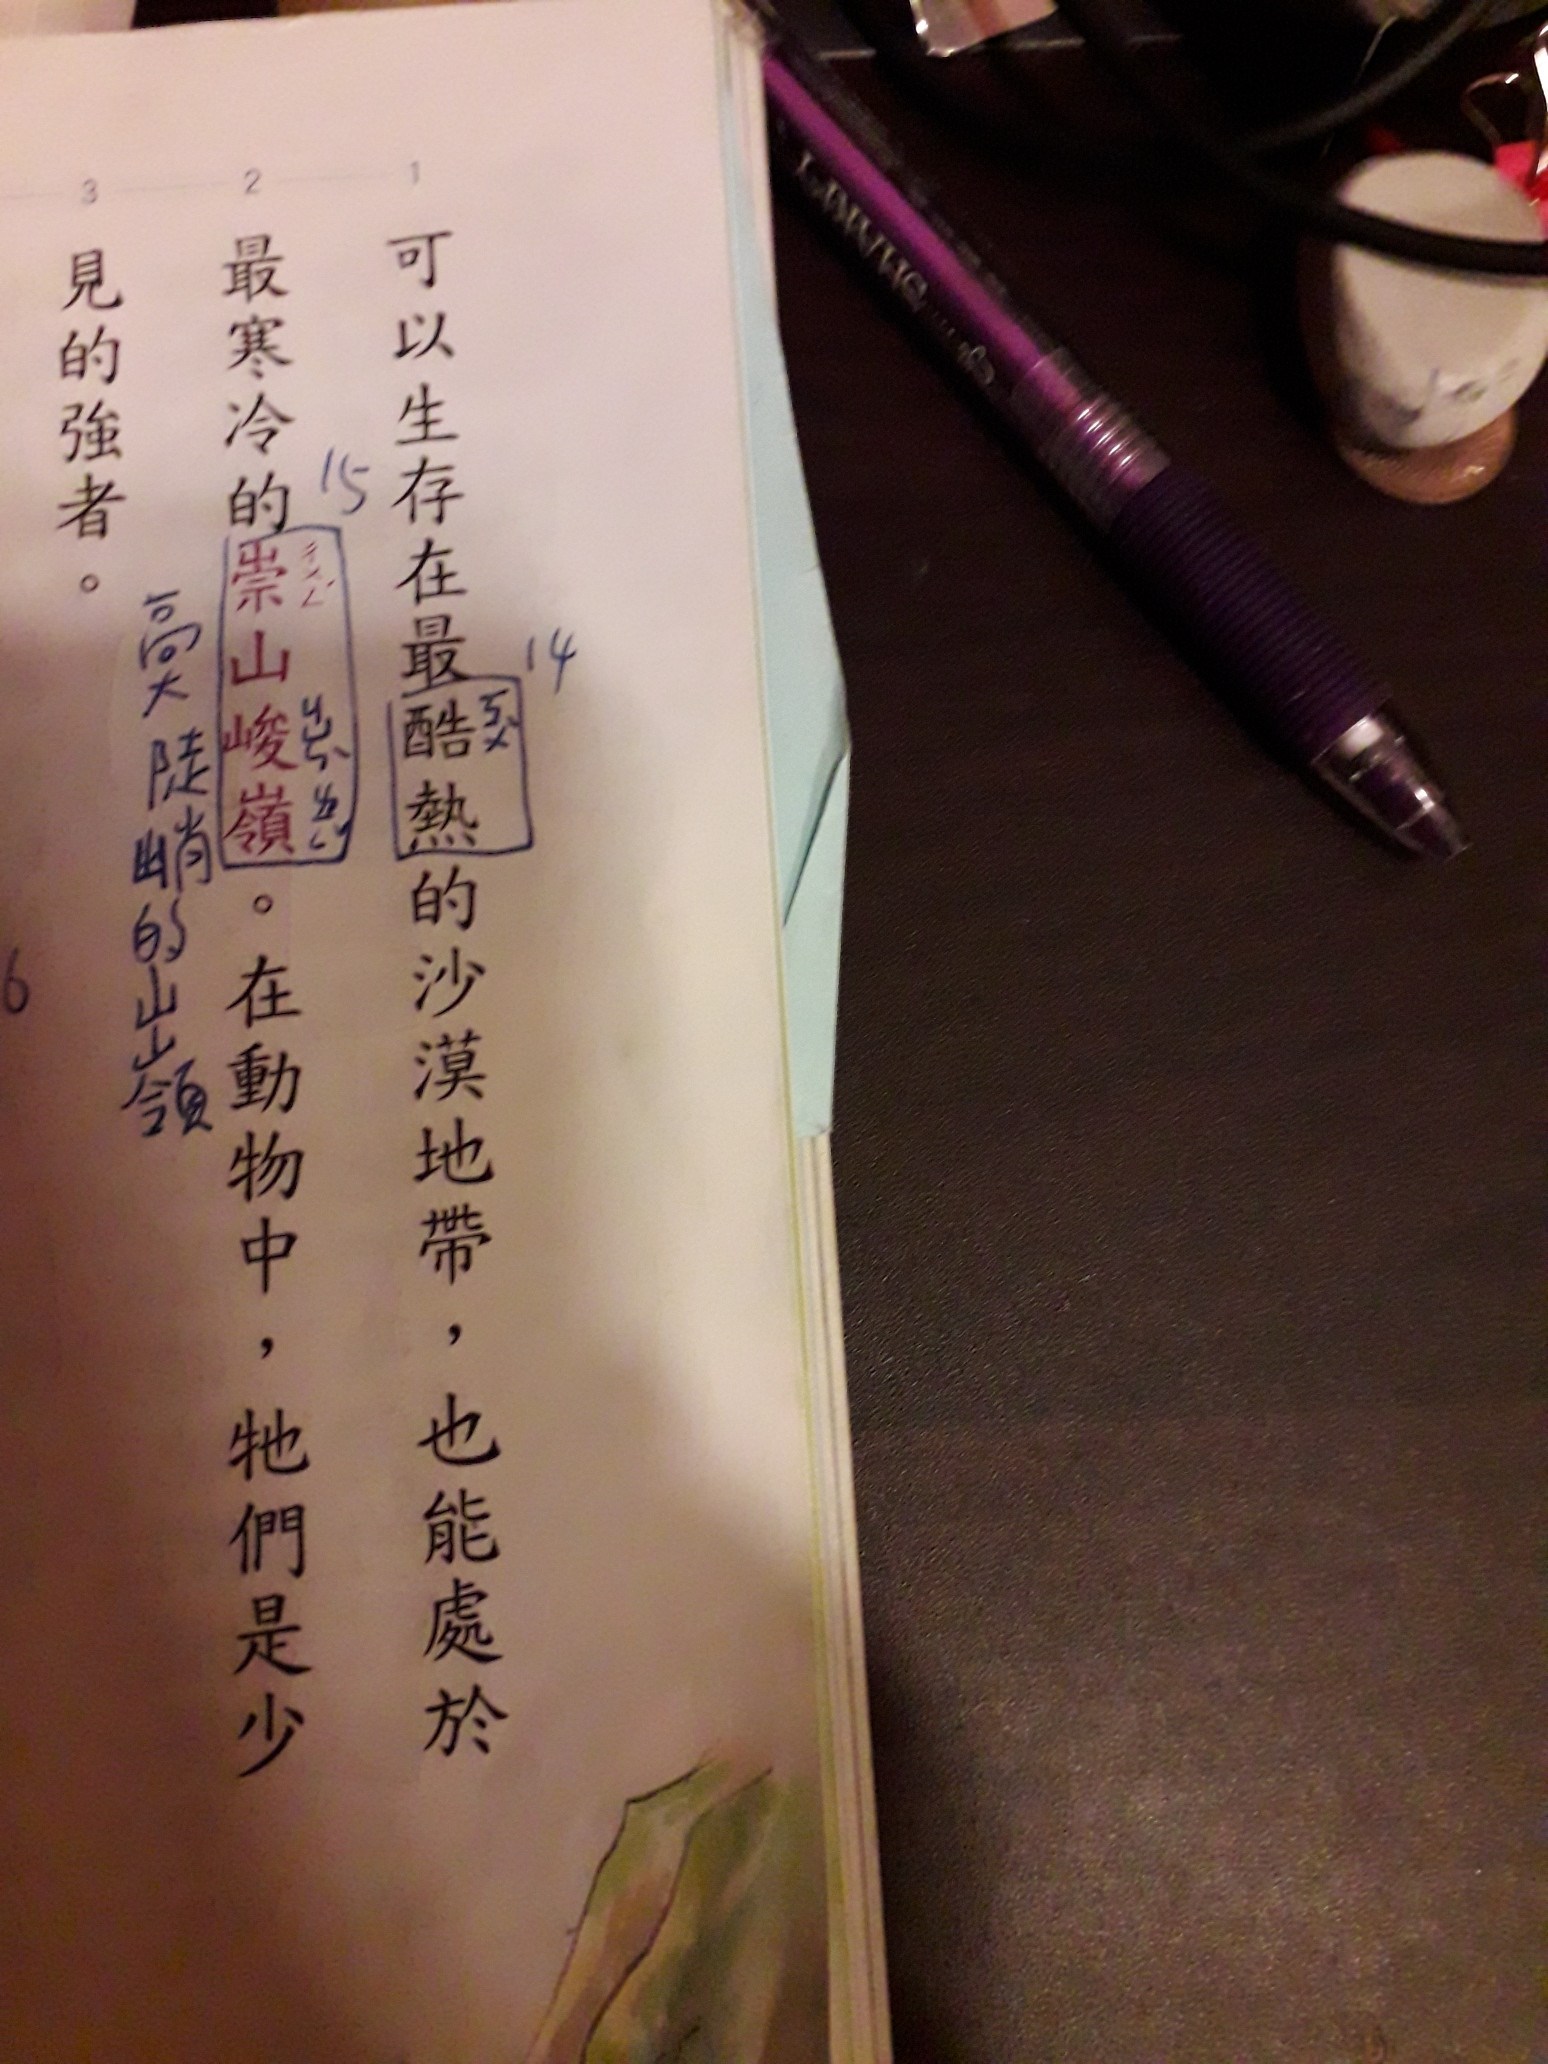 1
可以生存在最酷熱的沙漠地帶，也能處於
14
ㄎㄨˋ
2
最寒冷的崇山峻嶺。在動物中，牠們是少
15
ㄔㄨㄥˊ
ㄐㄩㄣˋ
ㄌㄧㄥˇ
高大陡峭的山嶺
3
見的強者。
6